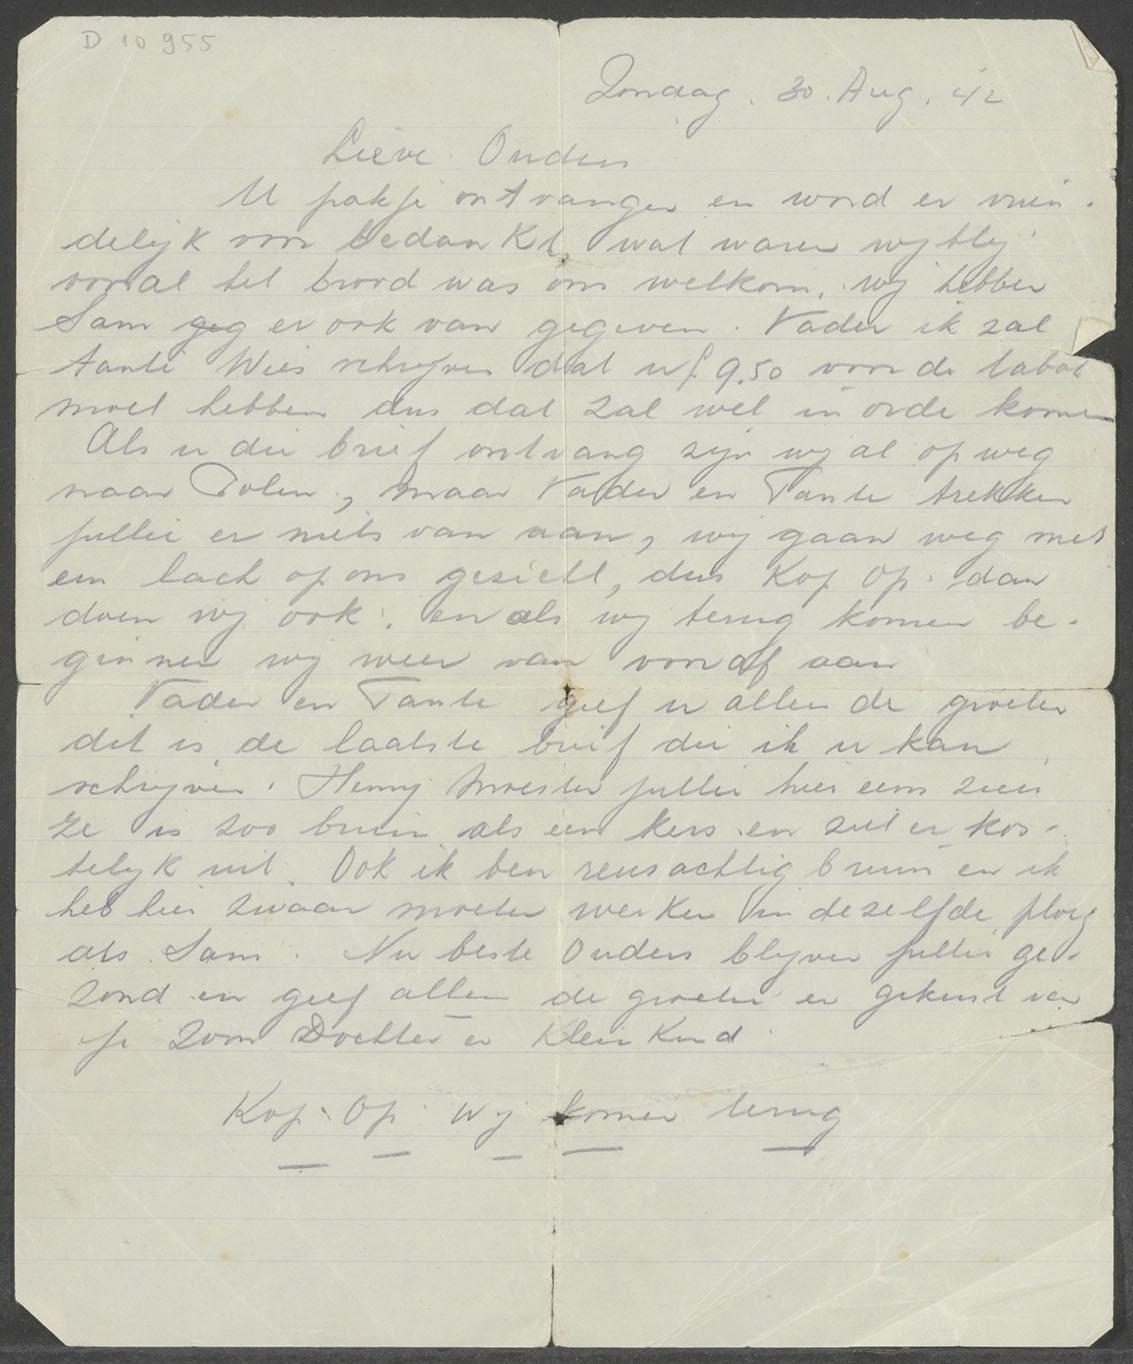 D 10955
Zondag. 30. Aug. 42
Lieve Ouders
U pakje ontvangen en word er vrien-
delijk voor bedankt, wat waren wij blij
vooral het brood was ons welkom. wij hebben
Sam geg er ook van gegeven. Vader ik zal
tante Wies schrijven dat u f 9.50 voor de tabak
moet hebben dus dat zal wel in orde komen
Als u die brief ontvang zijn wij al op weg
naar Polen, maar Vader en Tante trekken
jullie er niets van aan, wij gaan weg met
een lach op ons gezicht, dus Kop Op. dan
doen wij ook. en als wij terug komen be-
ginnen wij weer van voor af aan
Vader en Tante geef u allen de groeten
dit is de laatste brief die ik u kan
schrijven. Henny moesten jullie hier eens zien
ze is zoo bruin als een kers en ziet er kos-
telijk uit. Ook ik ben reusachtig bruin en ik
heb hier zwaar moeten werken in dezelfde ploeg
als Sam. Nu beste Ouders blijven jullie ge-
zond en geef allen de groeten en gekust van
je Zoon Dochter en Klein Kind
Kop Op Wij komen terug